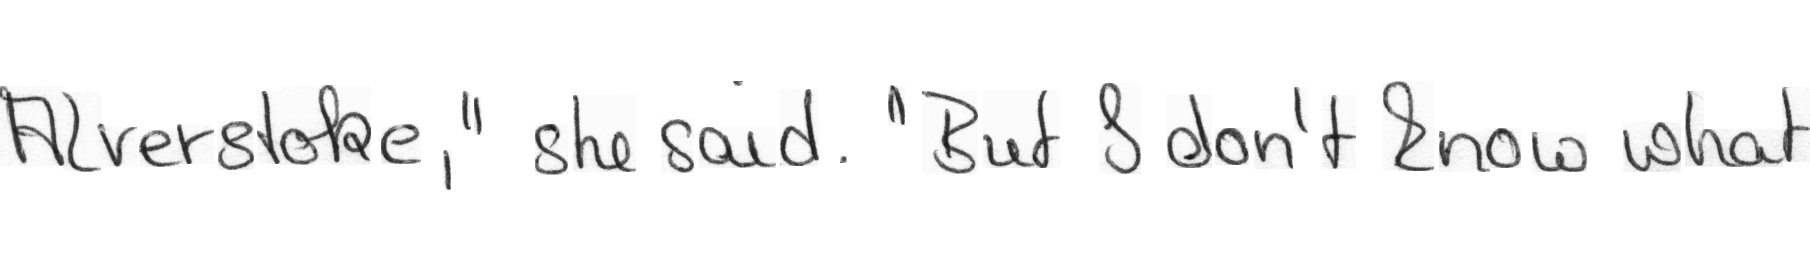 Alverstoke," she said. "But I don't know what